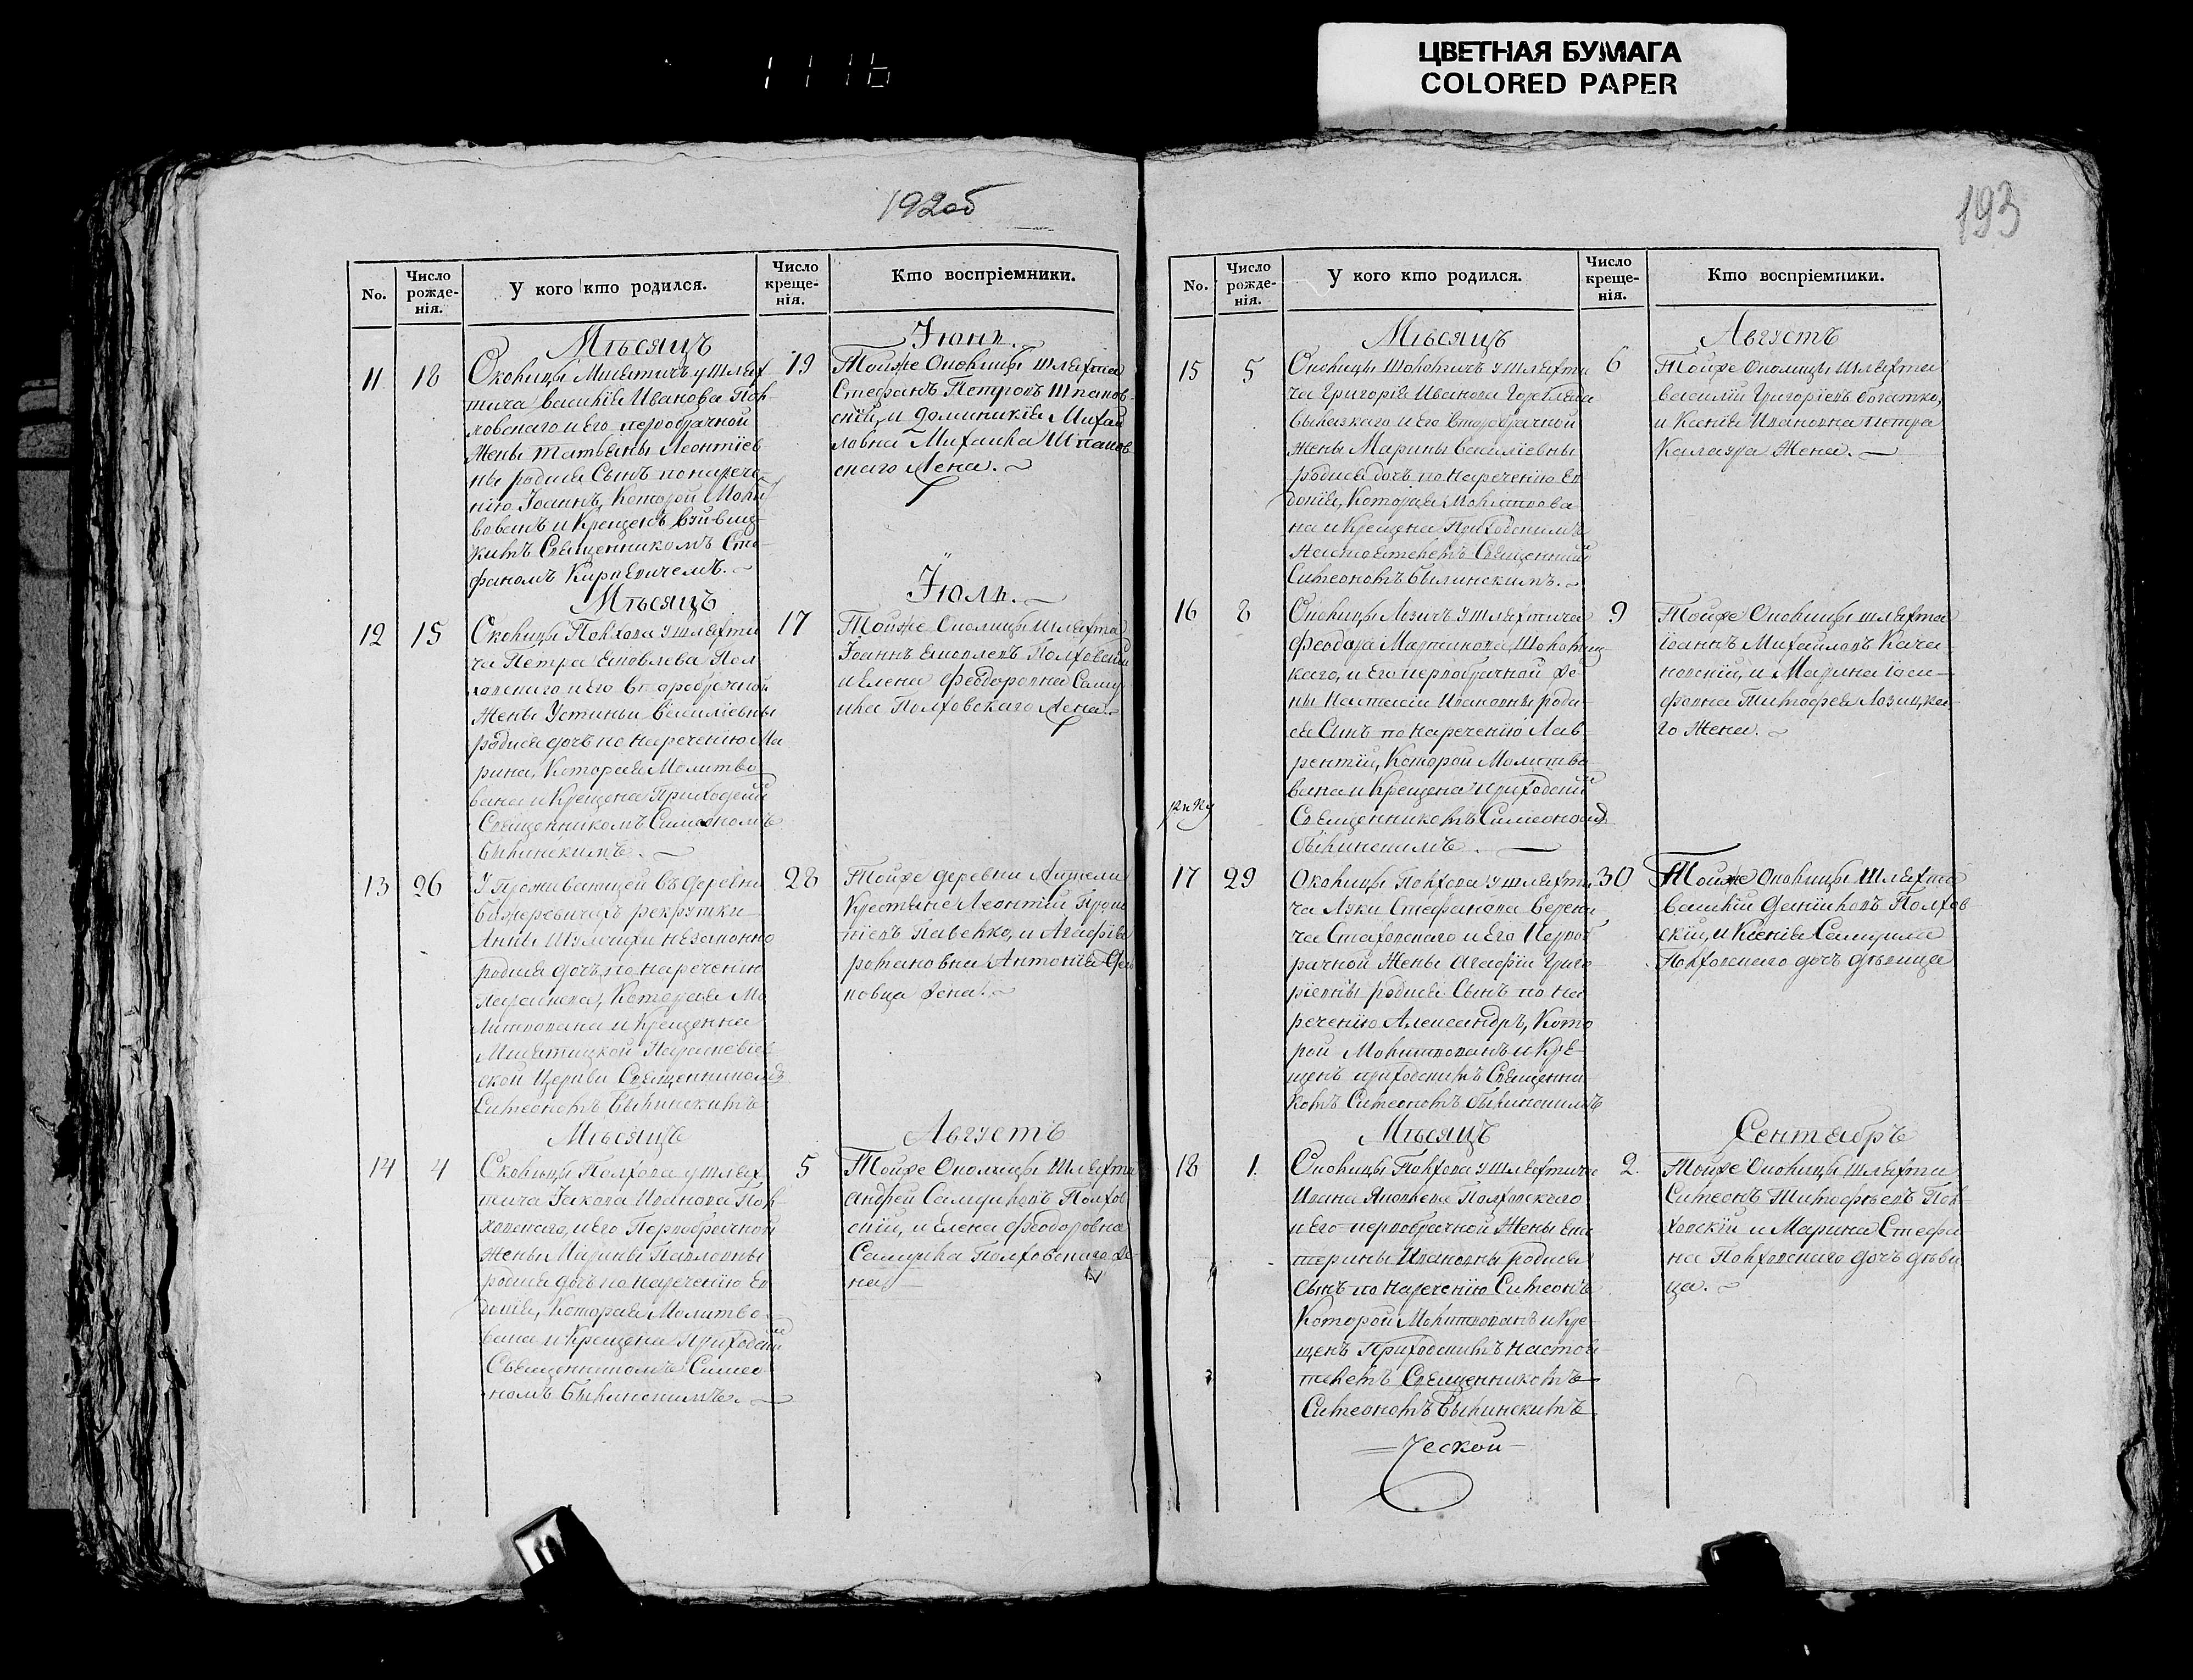 1116
ЦВЕТНАЯ БУМАГА
COLORED PAPER
192об
No.
Число рожденія.
У кого кто родился.
Число крещенія.
Кто воспріемники.
Мѣсяцъ
Іюнь
11 18
Околицы Миштичъ у шлях
тича Василія Иванова Пол
ховскаго и его первобрачной
жены Татьяны Леонтіев
ны родися сынъ по нарече
нію Іоаннъ, которой Молит
вованъ и крещенъ
Священникомъ Сте
фаномъ Киркевичемъ.
19
Тойже Околицы шляхта
Стефанъ Петровъ Шпаков
скій, и Доминикія Михай
ловна Михаила Шпаков
скаго жена.
Мѣсяцъ
Іюль.
12 15
Околицы Полхова у шляхти
ча Петра Яковлева Пол
ховскаго и его второбрачной
жены Устиньи Василіевны
родися дочь по нареченію Ма
рина, Которая Молитво
вана и крещена Приходскимъ
Священникомъ Симеономъ
Былинскимъ.
17
Тойже Околицы шляхта
Іоаннъ Яковлевъ Полховскій
и Елена Феодоровна Саму
ила Полховскаго жена.
13 26
У проживающей въ деревни
рекрутки
Анны незаконно
родися дочь по нареченію
Параскева, Которая Мо
литвована и крещенна
Параскевіев
ской Церкви Священникомъ
Симеономъ Былинскимъ
28
Тойже деревни
крестьяне Леонтій
и Агафія
Романовна Антонія
жена.
Мѣсяцъ
Августъ
14 4
Околицы Полхова у шлях
тича Іакова Иванова Пол
ховскаго, и его Первобрачной
жены Марины Павловны
родися дочь по нареченію Ев
докія, Которая Молитво
вана и крещена Приходскимъ
Священникомъ Симео
номъ Былинскимъ.
5
Тойже Околицы Шляхта
Андрей Самуиловъ Полхов
скій, и Елена Феодоровна
Самуила Полховскаго же
на
193
No.
Число рожденія.
У кого кто родился.
Число крещенія.
Кто воспріемники.
Мѣсяцъ
Августъ
15 5
Околицы у шляхти
ча Григорія Иванова
и его второбрачной
жены Марины Василіевны
родися дочь по нареченію Ев
докія, Которая Молитвова
на и крещена Приходскимъ
настоятелемъ Священникомъ
Симеономъ Былинскимъ.
6
Тойже Околицы Шляхта
Василій Григоріевъ Богатко,
и Ксенія Ивановна Петра
жена.
16 8
Околицы у шляхтича
Феодора Мартинова
каго, и его первобрачной же
ны Настасіи Ивановны роди
ся Сынъ по нареченію Лав
рентій, Которой Молитво
вана и крещена приходскимъ
Священникомъ Симеономъ
Былинскимъ.
9
Тойже Околицы шляхта
Іоаннъ Михайловъ Кача
новскій, и Марина Іоси
фовна Тимофея Лозицка
го жена.
17 29
Околицы Полхова у шляхти
ча Луки Стефанова
и его Первоб
рачной жены Агафіи Григо
ріевны родися Сынъ по на
реченію Александръ, Кото
рой Молитвованъ и кре
щенъ приходскимъ Священни
комъ Симеономъ Былинскимъ
30
Тойже Околицы Шляхта
Василій Полхов
скій, и Ксенія Самуила
Полховскаго дочь дѣвица
Мѣсяцъ
Сентябръ
18 1.
Околицы Полхова у шляхтича
Ивана Яковлева Полховскаго
и его первобрачной жены Ека
терины Ивановны родися
сынъ по нареченію Симеонъ
Которой Молитвованъ и кре
щенъ Приходскимъ настоя
телемъ Священникомъ
Симеономъ Былинскимъ
2
Тойже Околицы шляхта
Симеонъ Тимофѣевъ Пол
ховскій и Марина Стефа
на Полховскаго дочь дѣви
ца.
ческой